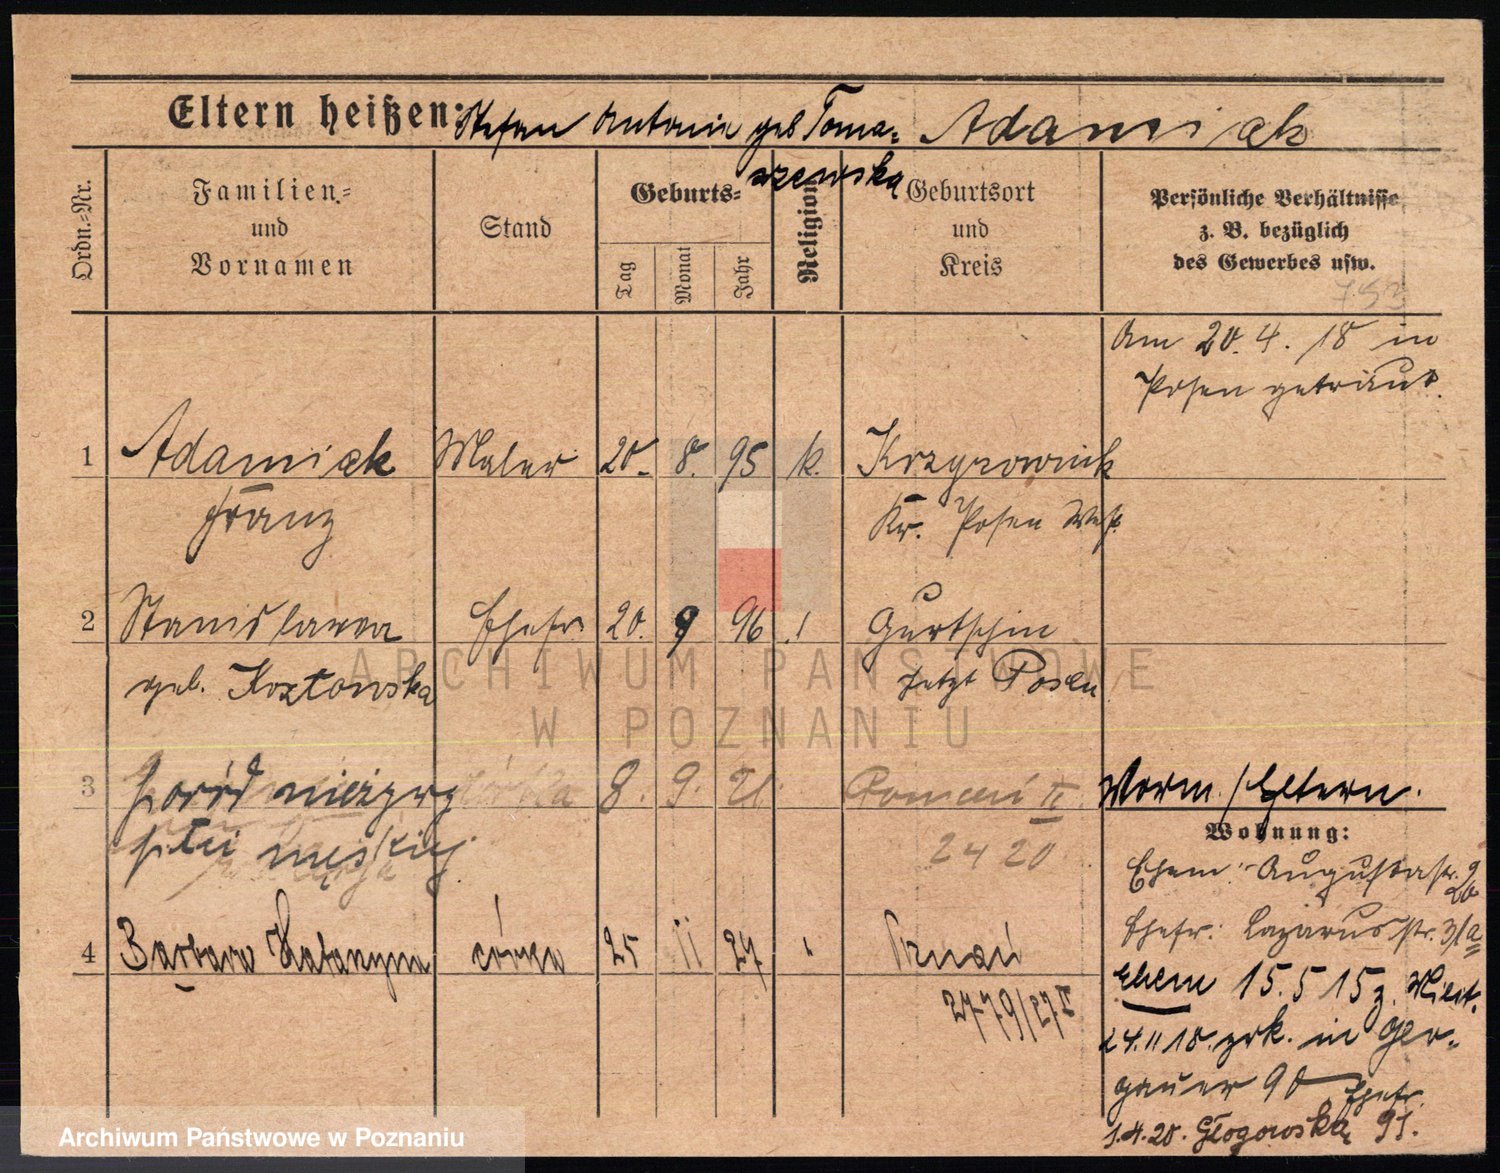 Eltern heißen: Stefan Antonie geb Toma= Adamiak
szewska
Ordn.=Nr.
Familien=
und
Vornamen
Stand
Geburts=
Tag
Monat
Jahr
Religion
Geburtsort
und
Kreis
Persönliche Verhältnisse
z. B. bezüglich
des Gewerbes usw.
753
Am 20. 4. 18 in
Posen getraut.
1 Adamiak Maler 20. 8. 95 k. Krzyżownik
Franz Kr. Posen West.
2 Stanislawa Ehefr. 20. 9 96 Gurtschin
geb. Koztowska jetzt Posen
3 8. 9. 21. Poznań II
2420
Worm. / Eltern.
Wohnung:
Ehem: Augustastr. 9
Ehefr: Lazarusstr. 31a
4 Barbara córka 25 II 27 Poznań
2779/27 I
Ehem 15.5 15 z. Milit.
24.11 18. zrk. in Glo-
gauer 90 Ehefr.
1.4.20. Głogowska 91.
ARCHIWUM PAŃSTWOWE
W POZNANIU
Archiwum Państwowe w Poznaniu